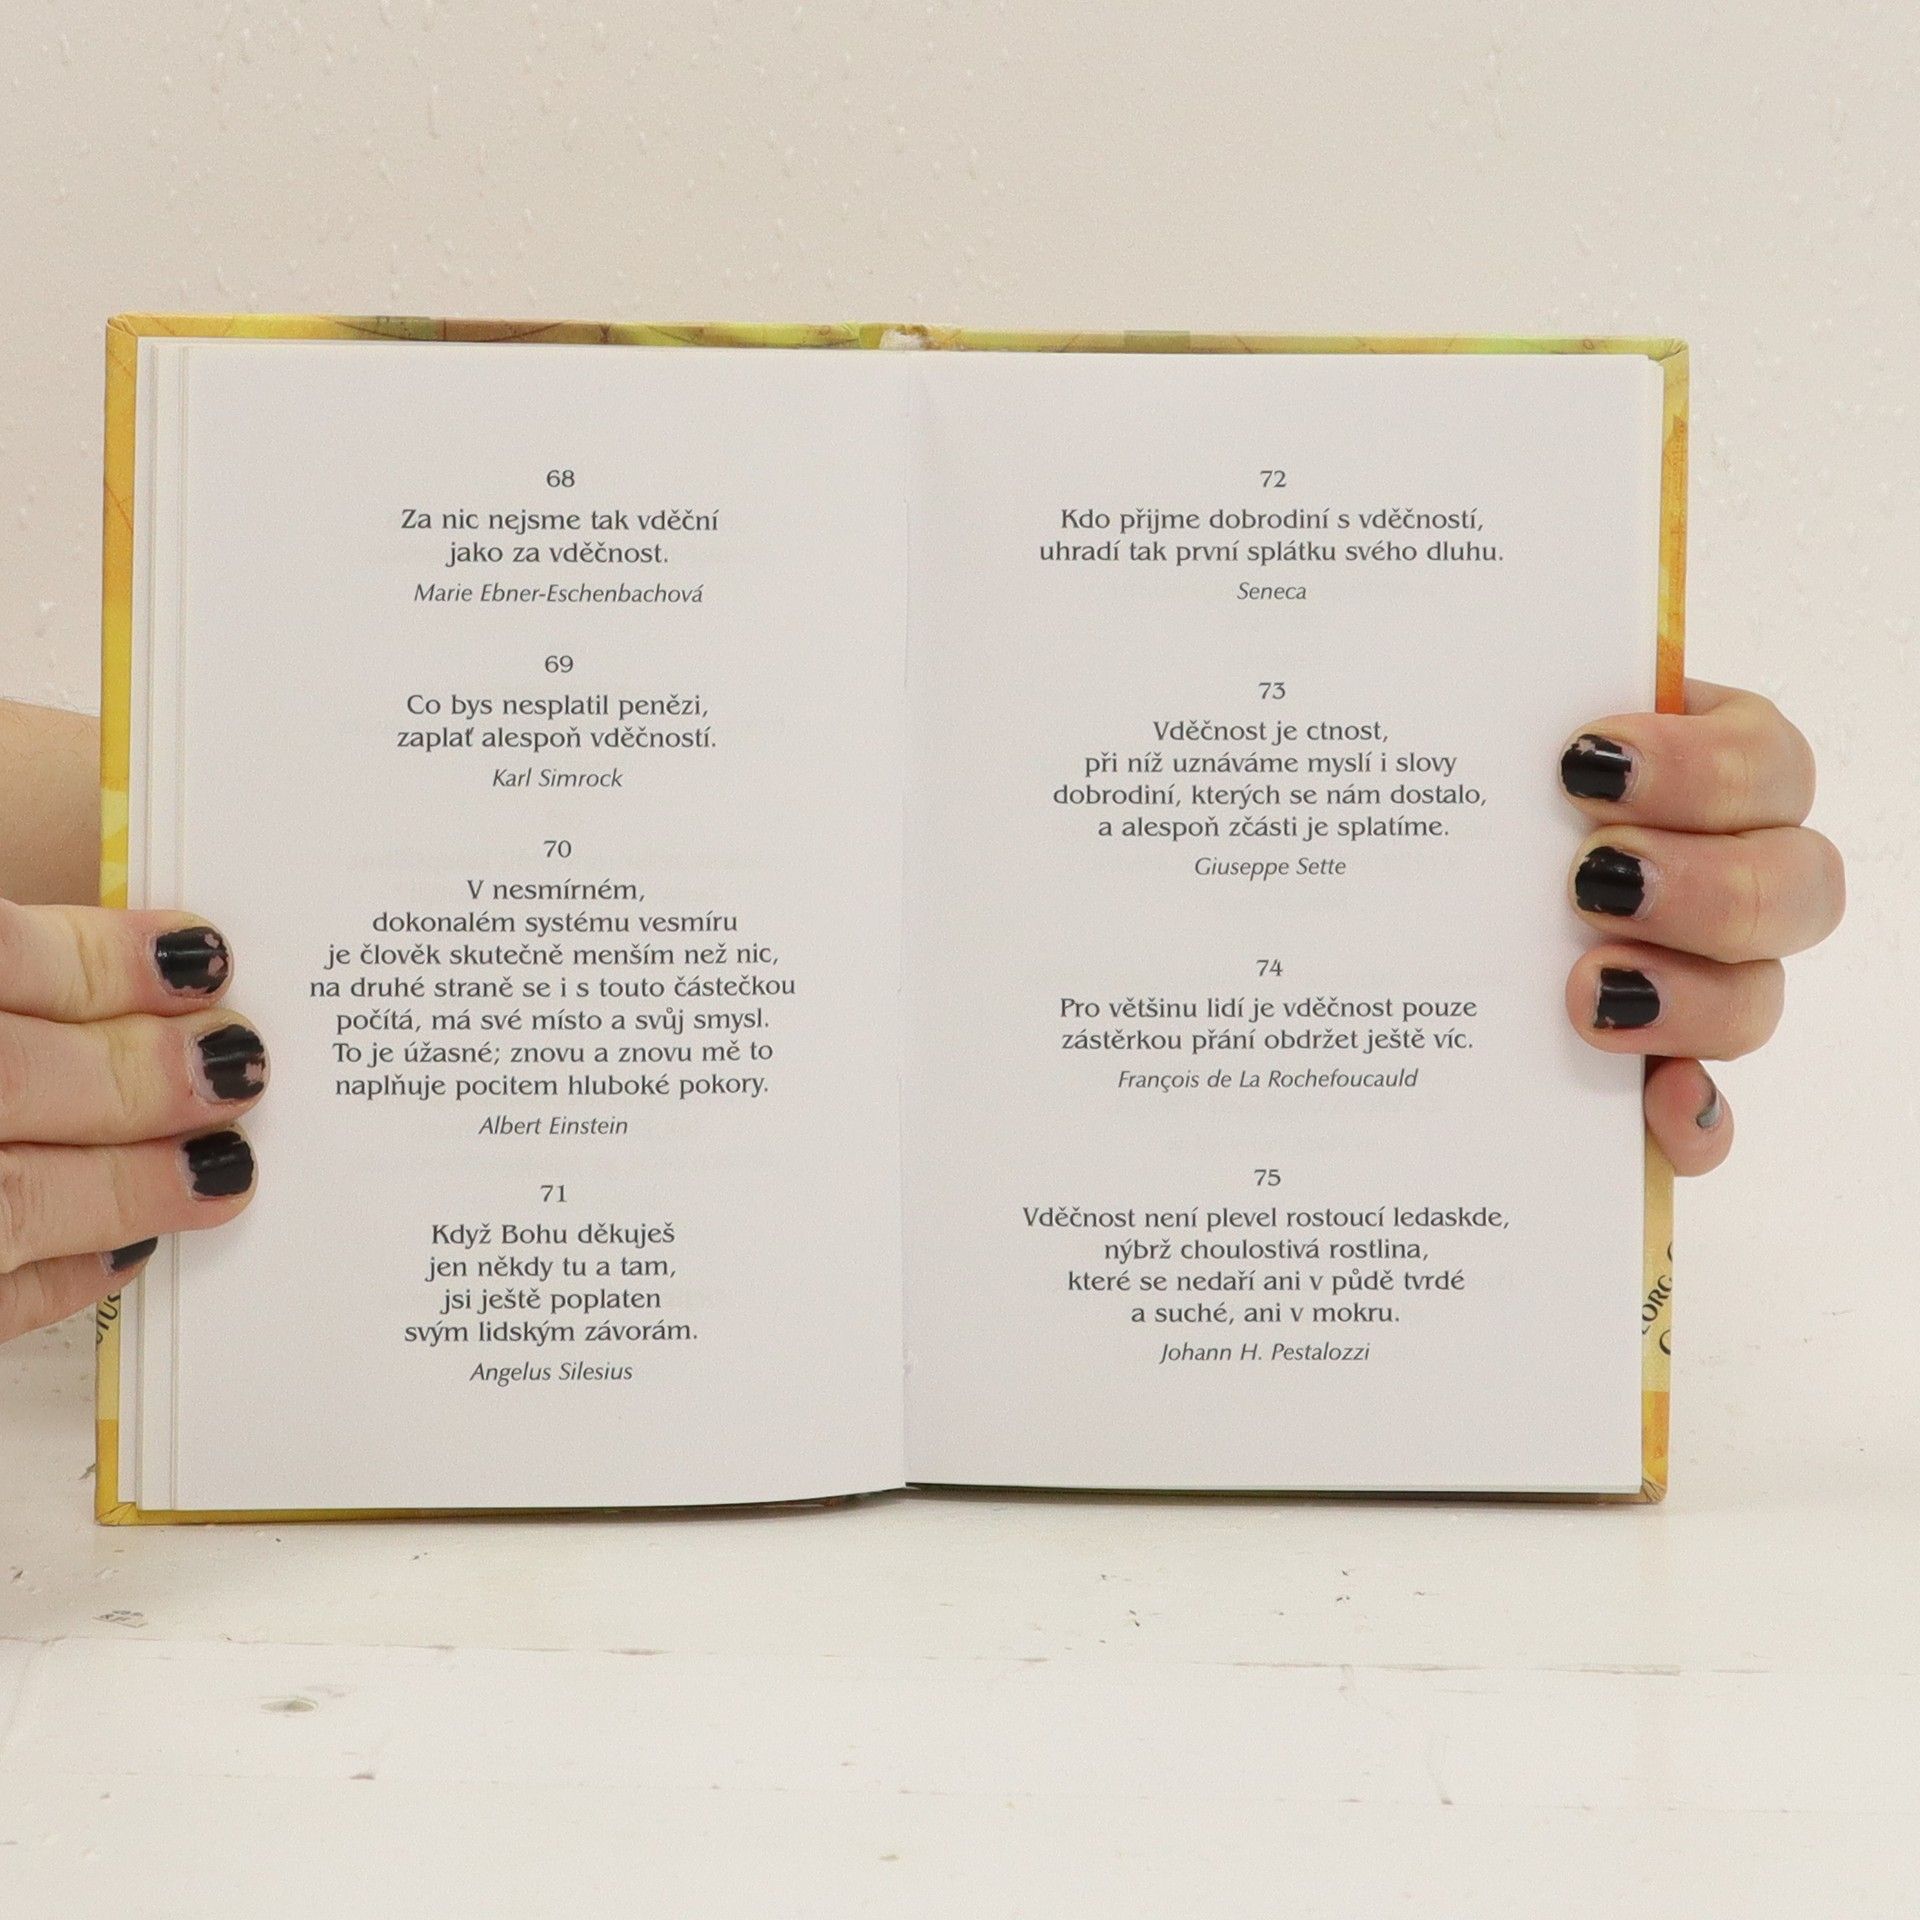 68
Za nic nejsme tak vděční
jako za vděčnost.
Marie Ebner-Eschenbachová
69
Co bys nesplatil penězi,
zaplať alespoň vděčností.
Karl Simrock
70
V nesmírném,
dokonalém systému vesmíru
je člověk skutečně menším než nic,
na druhé straně se i s touto částečkou
počítá, má své místo a svůj smysl.
To je úžasné; znovu a znovu mě to
naplňuje pocitem hluboké pokory.
Albert Einstein
71
Když Bohu děkuješ
jen někdy tu a tam,
jsi ještě poplaten
svým lidským závorám.
Angelus Silesius
72
Kdo přijme dobrodiní s vděčností,
uhradí tak první splátku svého dluhu.
Seneca
73
Vděčnost je ctnost,
při níž uznáváme myslí i slovy
dobrodiní, kterých se nám dostalo,
a alespoň zčásti je splatíme.
Giuseppe Sette
74
Pro většinu lidí je vděčnost pouze
zástěrkou přání obdržet ještě víc.
François de La Rochefoucauld
75
Vděčnost není plevel rostoucí ledaskde,
nýbrž choulostivá rostlina,
které se nedaří ani v půdě tvrdé
a suché, ani v mokru.
Johann H. Pestalozzi